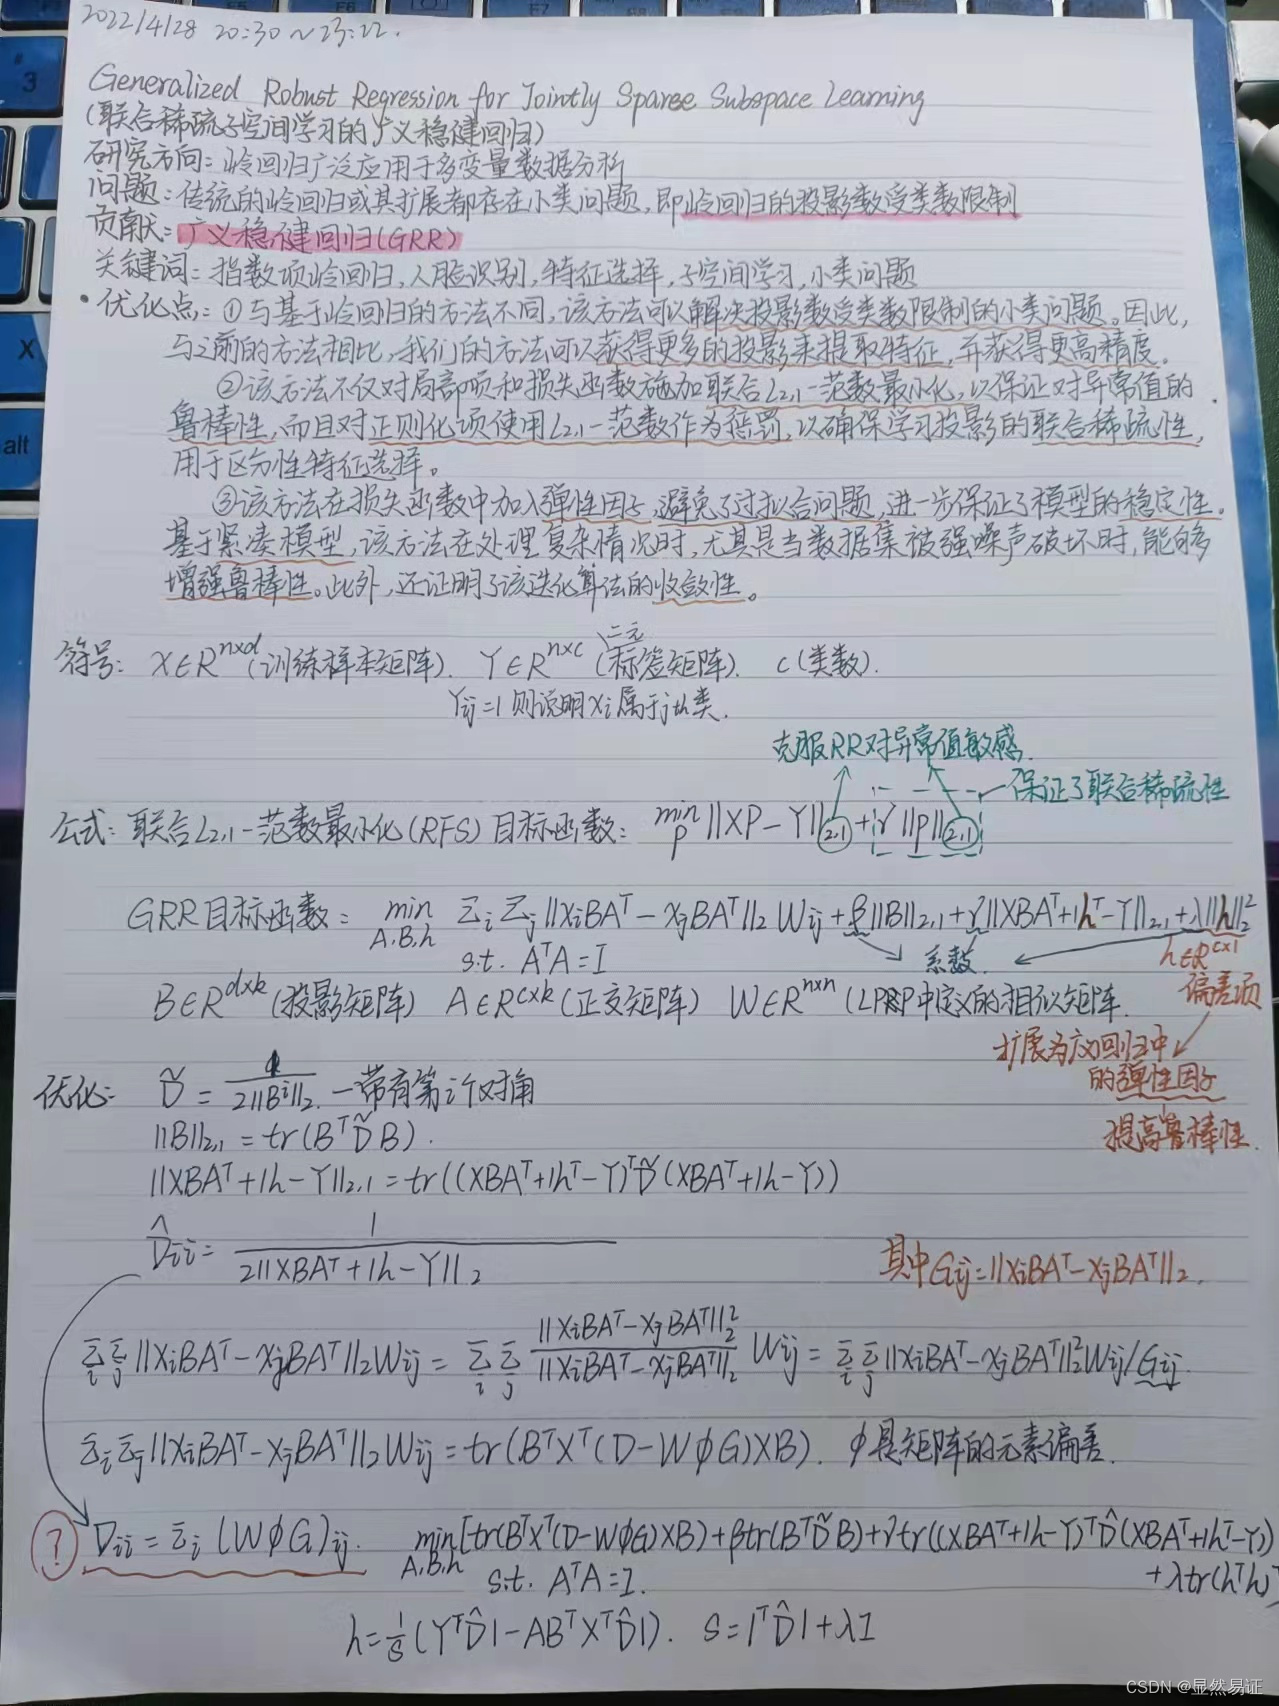 2022/4/28 20:30～23:22.
Generalized Robust Regression for Jointly Sparse Subspace Learning
(联合稀疏子空间学习的广义稳健回归)
研究方向：岭回归广泛应用于多变量数据分析
问题：传统的岭回归或其扩展都存在小类问题，即岭回归的投影数受类数限制
贡献：广义稳健回归(GRR)
关键词：指数项岭回归，人脸识别，特征选择，子空间学习，小类问题
·优化点：①与基于岭回归的方法不同，该方法可以解决投影数受类数限制的小类问题。因此，
与之前的方法相比，我们的方法可以获得更多的投影来提取特征，并获得更高精度。
②该方法不仅对局部项和损失函数施加联合L2,1-范数最小化，以保证对异常值的
鲁棒性，而且对正则化项使用L2,1-范数作为惩罚，以确保学习投影的联合稀疏性，
用于区分性特征选择。
③该方法在损失函数中加入弹性因子，避免了过拟合问题，进一步保证了模型的稳定性。
基于紧凑模型，该方法在处理复杂情况时，尤其是当数据集被强噪声破坏时，能够
增强鲁棒性。此外，还证明了该迭代算法的收敛性。
二元
符号：X∈R^{n×d}(训练样本矩阵). Y∈R^{n×c}(标签矩阵). c(类数).
Yij=1则说明xi属于jth类.
克服RR对异常值敏感.
保证了联合稀疏性
公式：联合L2,1-范数最小化(RFS)目标函数：min_P ||XP-Y||_{2,1}+γ||P||_{2,1}
GRR目标函数：min_{A,B,h} Σ_iΣ_j||x_iBA^T-x_jBA^T||_2 W_{ij}+β||B||_{2,1}+γ||XBA^T+1h^T-Y||_{2,1}+λ||h||_2^2
s.t. A^TA=I
系数.
h∈R^{c×1}
偏差项
B∈R^{d×k}(投影矩阵) A∈R^{c×k}(正交矩阵) W∈R^{n×n}(LPP中定义的相似矩阵.
扩展为广义回归中
的弹性因子
提高鲁棒性.
优化： D̃=1/(2||B^i||_2) —带有第i个对角
||B||_{2,1}=tr(B^TD̃B).
||XBA^T+1h-Y||_{2,1}=tr((XBA^T+1h^T-Y)^TD̃(XBA^T+1h-Y))
D̂_{ii}=1/(2||XBA^T+1h-Y||_2)
其中G_{ij}=||x_iBA^T-x_jBA^T||_2.
Σ_iΣ_j||x_iBA^T-x_jBA^T||_2W_{ij}=Σ_iΣ_j (||x_iBA^T-x_jBA^T||_2^2/||x_iBA^T-x_jBA^T||_2) W_{ij}=Σ_iΣ_j||x_iBA^T-x_jBA^T||_2^2W_{ij}/G_{ij}.
Σ_iΣ_j||x_iBA^T-x_jBA^T||_2W_{ij}=tr(B^TX^T(D-WφG)XB). φ是矩阵的元素偏差.
? D_{ii}=Σ_i(WφG)_{ij}. min_{A,B,h}[tr(B^TX^T(D-WφG)XB)+βtr(B^TD̃B)+γtr((XBA^T+1h-Y)^TD̂(XBA^T+1h^T-Y))
s.t. A^TA=I. +λtr(h^Th)]
h=1/s(Y^TD̂1-AB^TX^TD̂1). s=1^TD̂1+λI
CSDN @显然易证